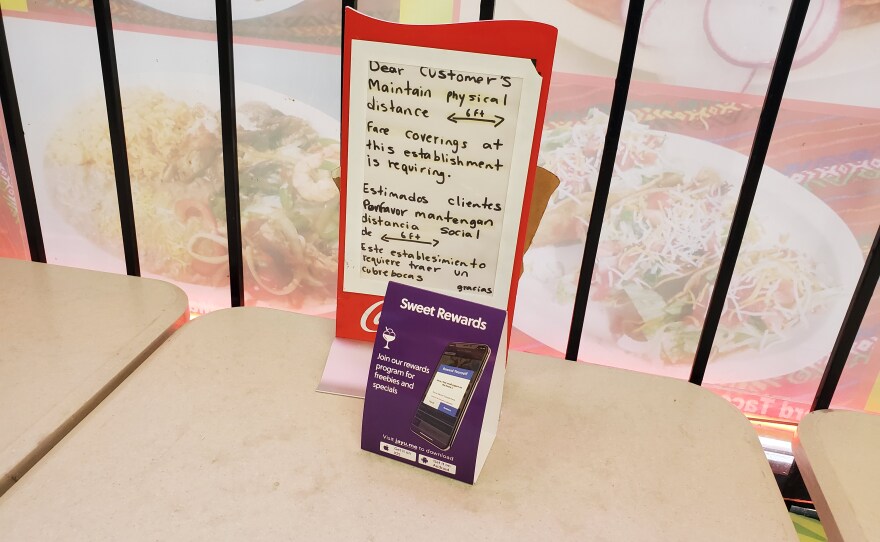 Dear Customer's
Maintain physical
distance 6ft
Face coverings at
this establishment
is requiring.
Estimados clientes
Porfavor mantengan
distancia social
de 6ft
Este establesimiento
requiere traer un
cubrebocas
gracias
Sweet Rewards
Join our rewards
program for
freebies and
specials
Visit jayu.me to download